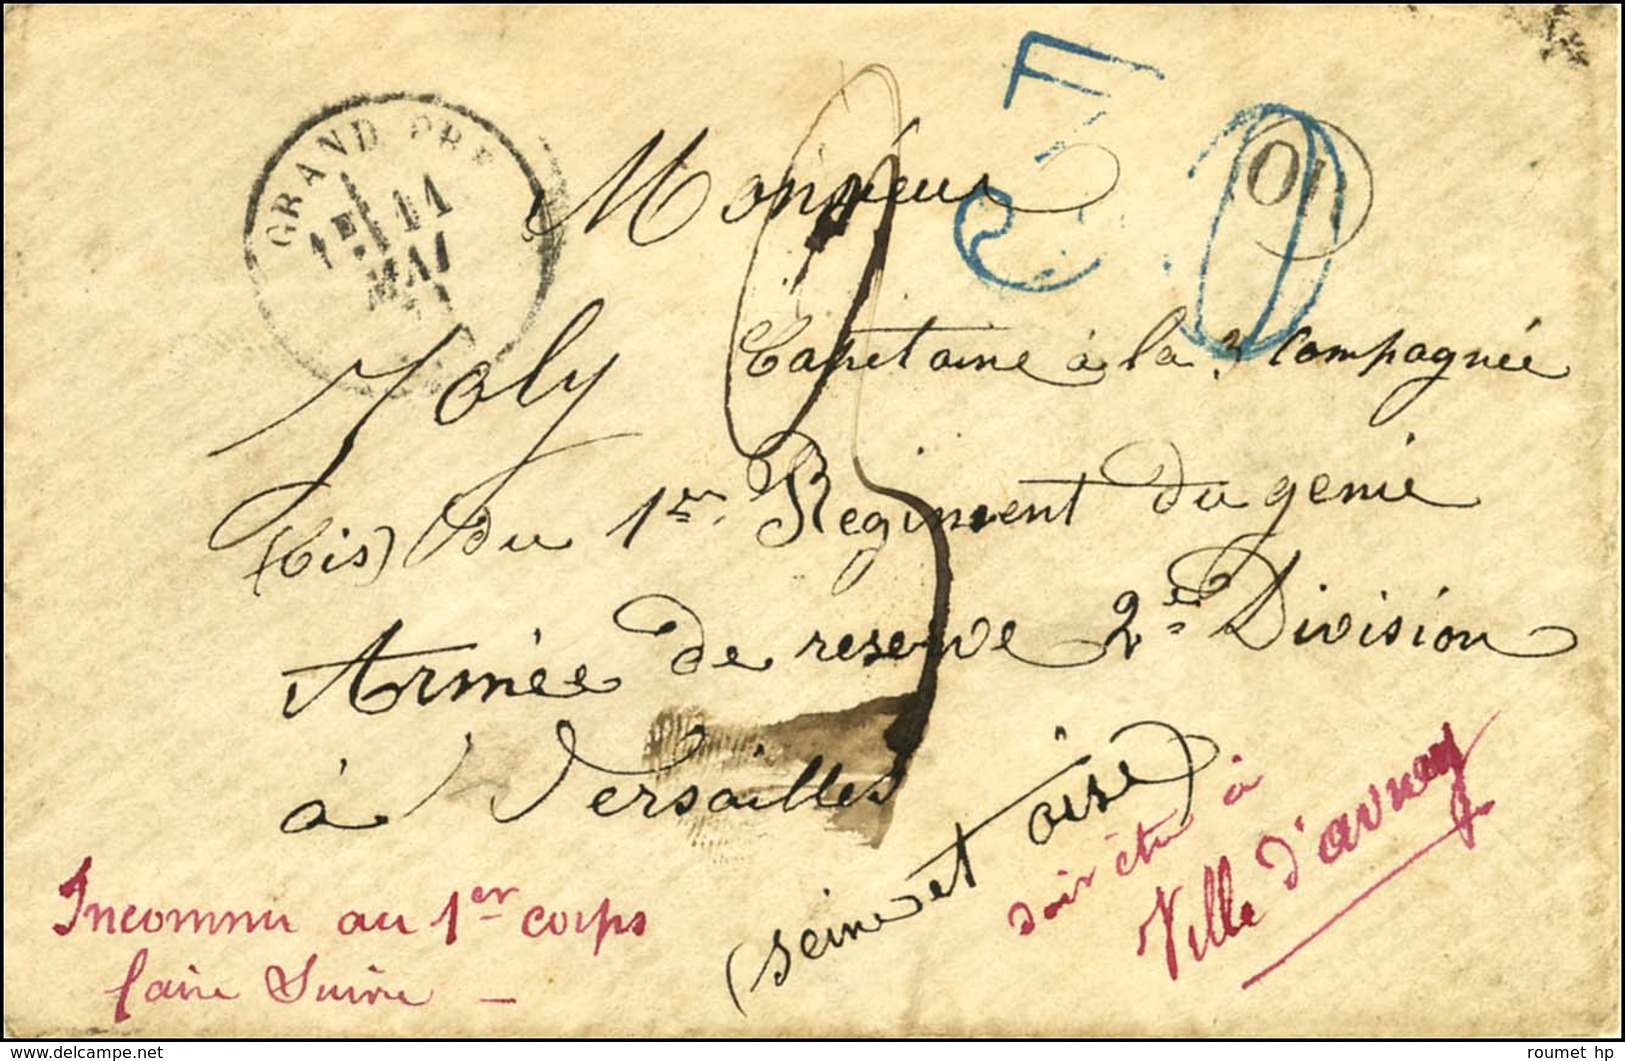 GRAND PRE
1E 11
MAI
71
OR
Monsieur
Joly Capitaine à la 3 Compagnie
(bis) du 1er Regiment du genie
Armée de reserve 2e Division
à Versailles
(seine et oise)
Inconnu au 1er corps
faire Suivre -
doit être à
Ville d'avray
roumet hp